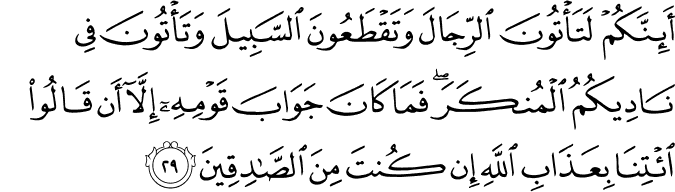 أَئِنَّكُمۡ لَتَأۡتُونَ ٱلرِّجَالَ وَتَقۡطَعُونَ ٱلسَّبِيلَ وَتَأۡتُونَ فِي
نَادِيكُمُ ٱلۡمُنكَرَۖ فَمَا كَانَ جَوَابَ قَوۡمِهِۦٓ إِلَّآ أَن قَالُواْ
ٱئۡتِنَا بِعَذَابِ ٱللَّهِ إِن كُنتَ مِنَ ٱلصَّٰدِقِينَ ٢٩